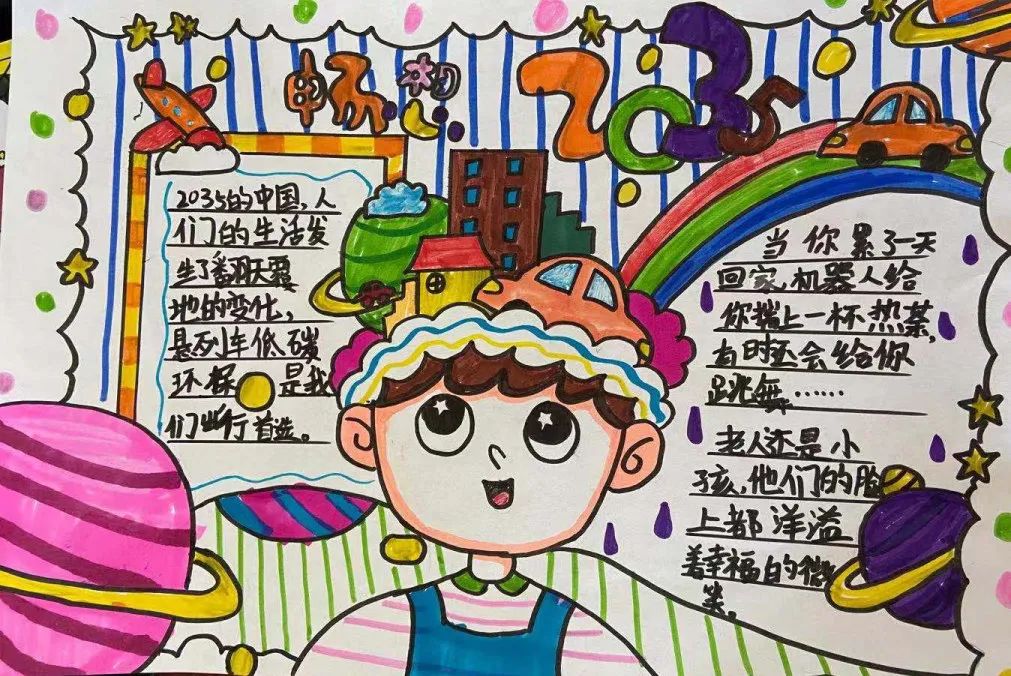 畅想2035
2035的中国,人
们的生活发
生了翻天覆
地的变化,
悬列车低碳
环保 是我
们出行首选。
当你累了一天
回家,机器人给
你端上一杯热茶,
有时还会给你
跳舞……
老人还是小
孩,他们的脸
上都洋溢
着幸福的微
笑。